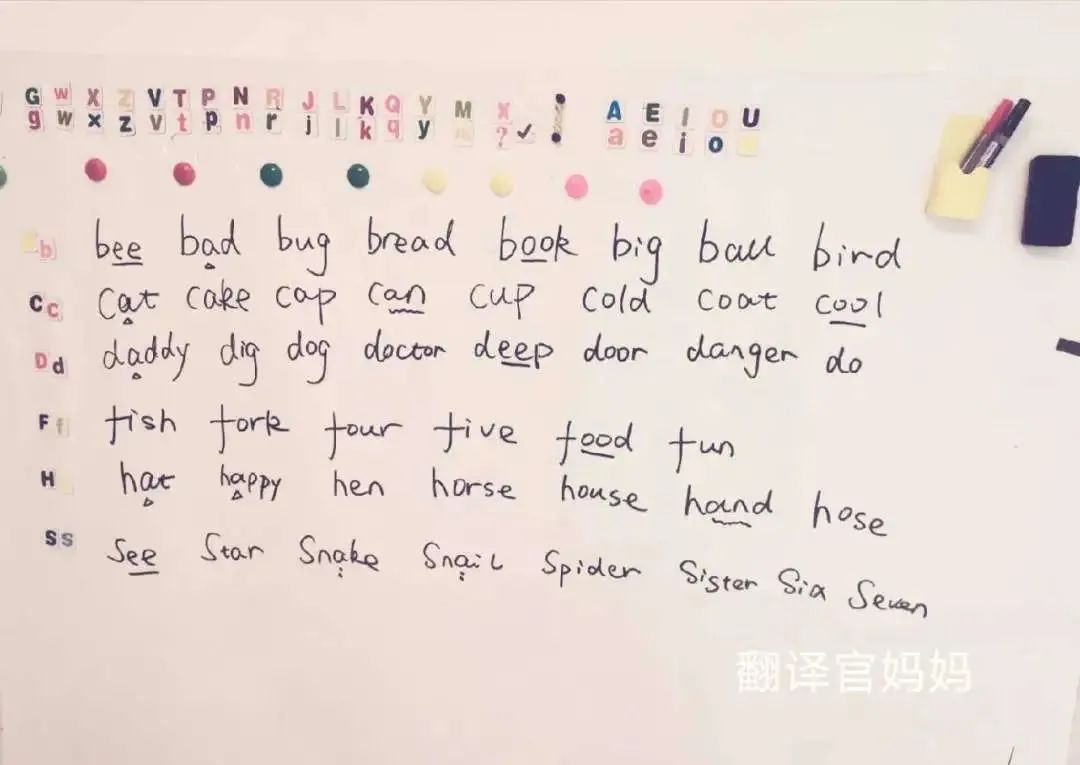 G W X Z V T P N R J L K Q Y M X A E I O U
g w x z v t p n r j l k q y ? ✓ a e i o
b bee bad bug bread book big ball bird
C c cat cake cap can cup cold coat cool
D d daddy dig dog doctor deep door danger do
F f fish fork four five food fun
H hat happy hen horse house hand hose
S s See Star Snake Snail Spider Sister Six Seven
翻译官妈妈